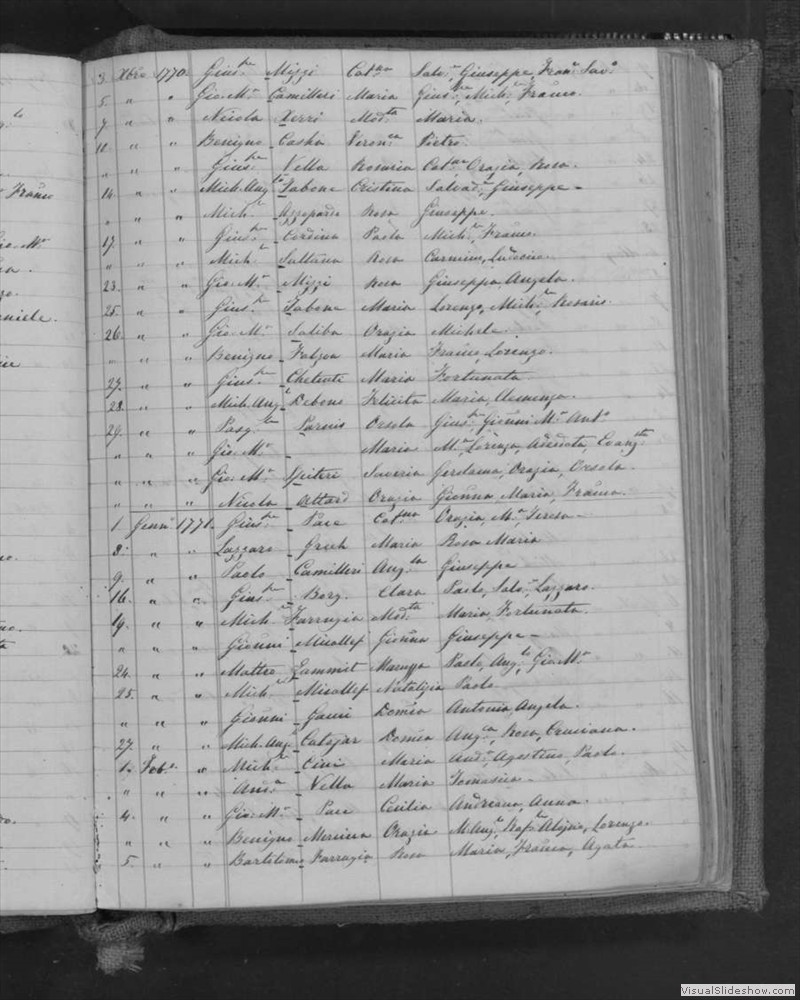 to
Franco
Gio. Mr
niele.
3 Xbre 1770. Giuspe Mizzi Catna Salvre, Giuseppe, Franco Savo
5. " " Gio. Mr Camilleri Maria Giuspe, Miche, Franco.
7 " " Nicola Xerri Modta Maria.
11. " " Benigno Casha Veronca Pietro
" " " Giuspe Vella Rosaria Catna Orazia, Rosa.
14. " " Mich. Angto Tabone Cristina Salvare, Giuseppe -
" " " Michle Azzopardi Rosa Giuseppe.
17. " " Giuspe Cardina Paola Michle, Franco.
" " " Michle Sultana Rosa Carmine, Ludovico.
23. " " Gio. Mr Mizzi Rosa Giuseppa, Angela.
25. " " Giuspe Tabone Maria Lorenzo, Michle, Rosario.
26. " " Gio. Mr Saliba Orazia Michele.
" " " Benigno Falzon Maria Franco, Lorenzo.
27. " " Giuspe Chetcuti Maria Fortunata
28. " " Mich. Angl Debono Felicita Maria, Clemenza.
29. " " Pasqle Parnis Orsola Giuspe, Gionni Mr Anto
" " " Gio. Mr - Maria Ma, Lorenza, Evangta
" " " Gio. Mr Spiteri Saveria Gerolama, Orazia, Orsola.
" " " Nicola Attard Orazia Gionna, Maria, Franca.
1. Genn. 1771. Giuspe Pace Catna Orazia, Ma, Teresa -
8. " " Lazzaro Grech Maria Rosa Maria
9. " " Paolo Camilleri Angla Giuseppe
16. " " Giuspe Borg. Clara Paolo, Salvre, Lazzaro.
19. " " Michle Farrugia Modta Maria, Fortunata.
" " " Gionni Micallef Gionna Giuseppe -
24. " " Matteo Zammit Maruzza Paolo, Angle, Gio. Mr
25. " " Michle Micallef Natalizia Paolo
" " " Gionni Gauci Domca Antonia Angela.
27. " " Mich. Angl Cutajar Domca Angca, Rosa, Cruciana.
1. Feb. " Michle Cini Maria Anda, Agostino, Paolo.
" " " Anda Vella Maria Tomasica -
4. " " Gio. Mr Pace Cecilia Andreana, Anna.
" " " Benigno Mercieca Orazia M. Angl, Rafle, Alojsia, Lorenzo.
5. " " Bartolomeo Farrugia Rosa Maria, Franca, Agata
VisualSlideshow.com